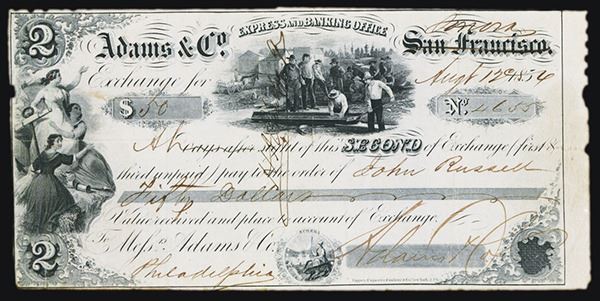 2
EXPRESS AND BANKING OFFICE
Sonora
Adams & Co. San Francisco.
Exchange for Augt 12th 1854
$ 50 No.
At sight of this SECOND of Exchange (first &
third unpaid) pay to the order of John Russell
Fifty Dollars
Value received and place to account of Exchange.
To Messrs. Adams & Co. Adams & Co
EUREKA
2 Philadelphia